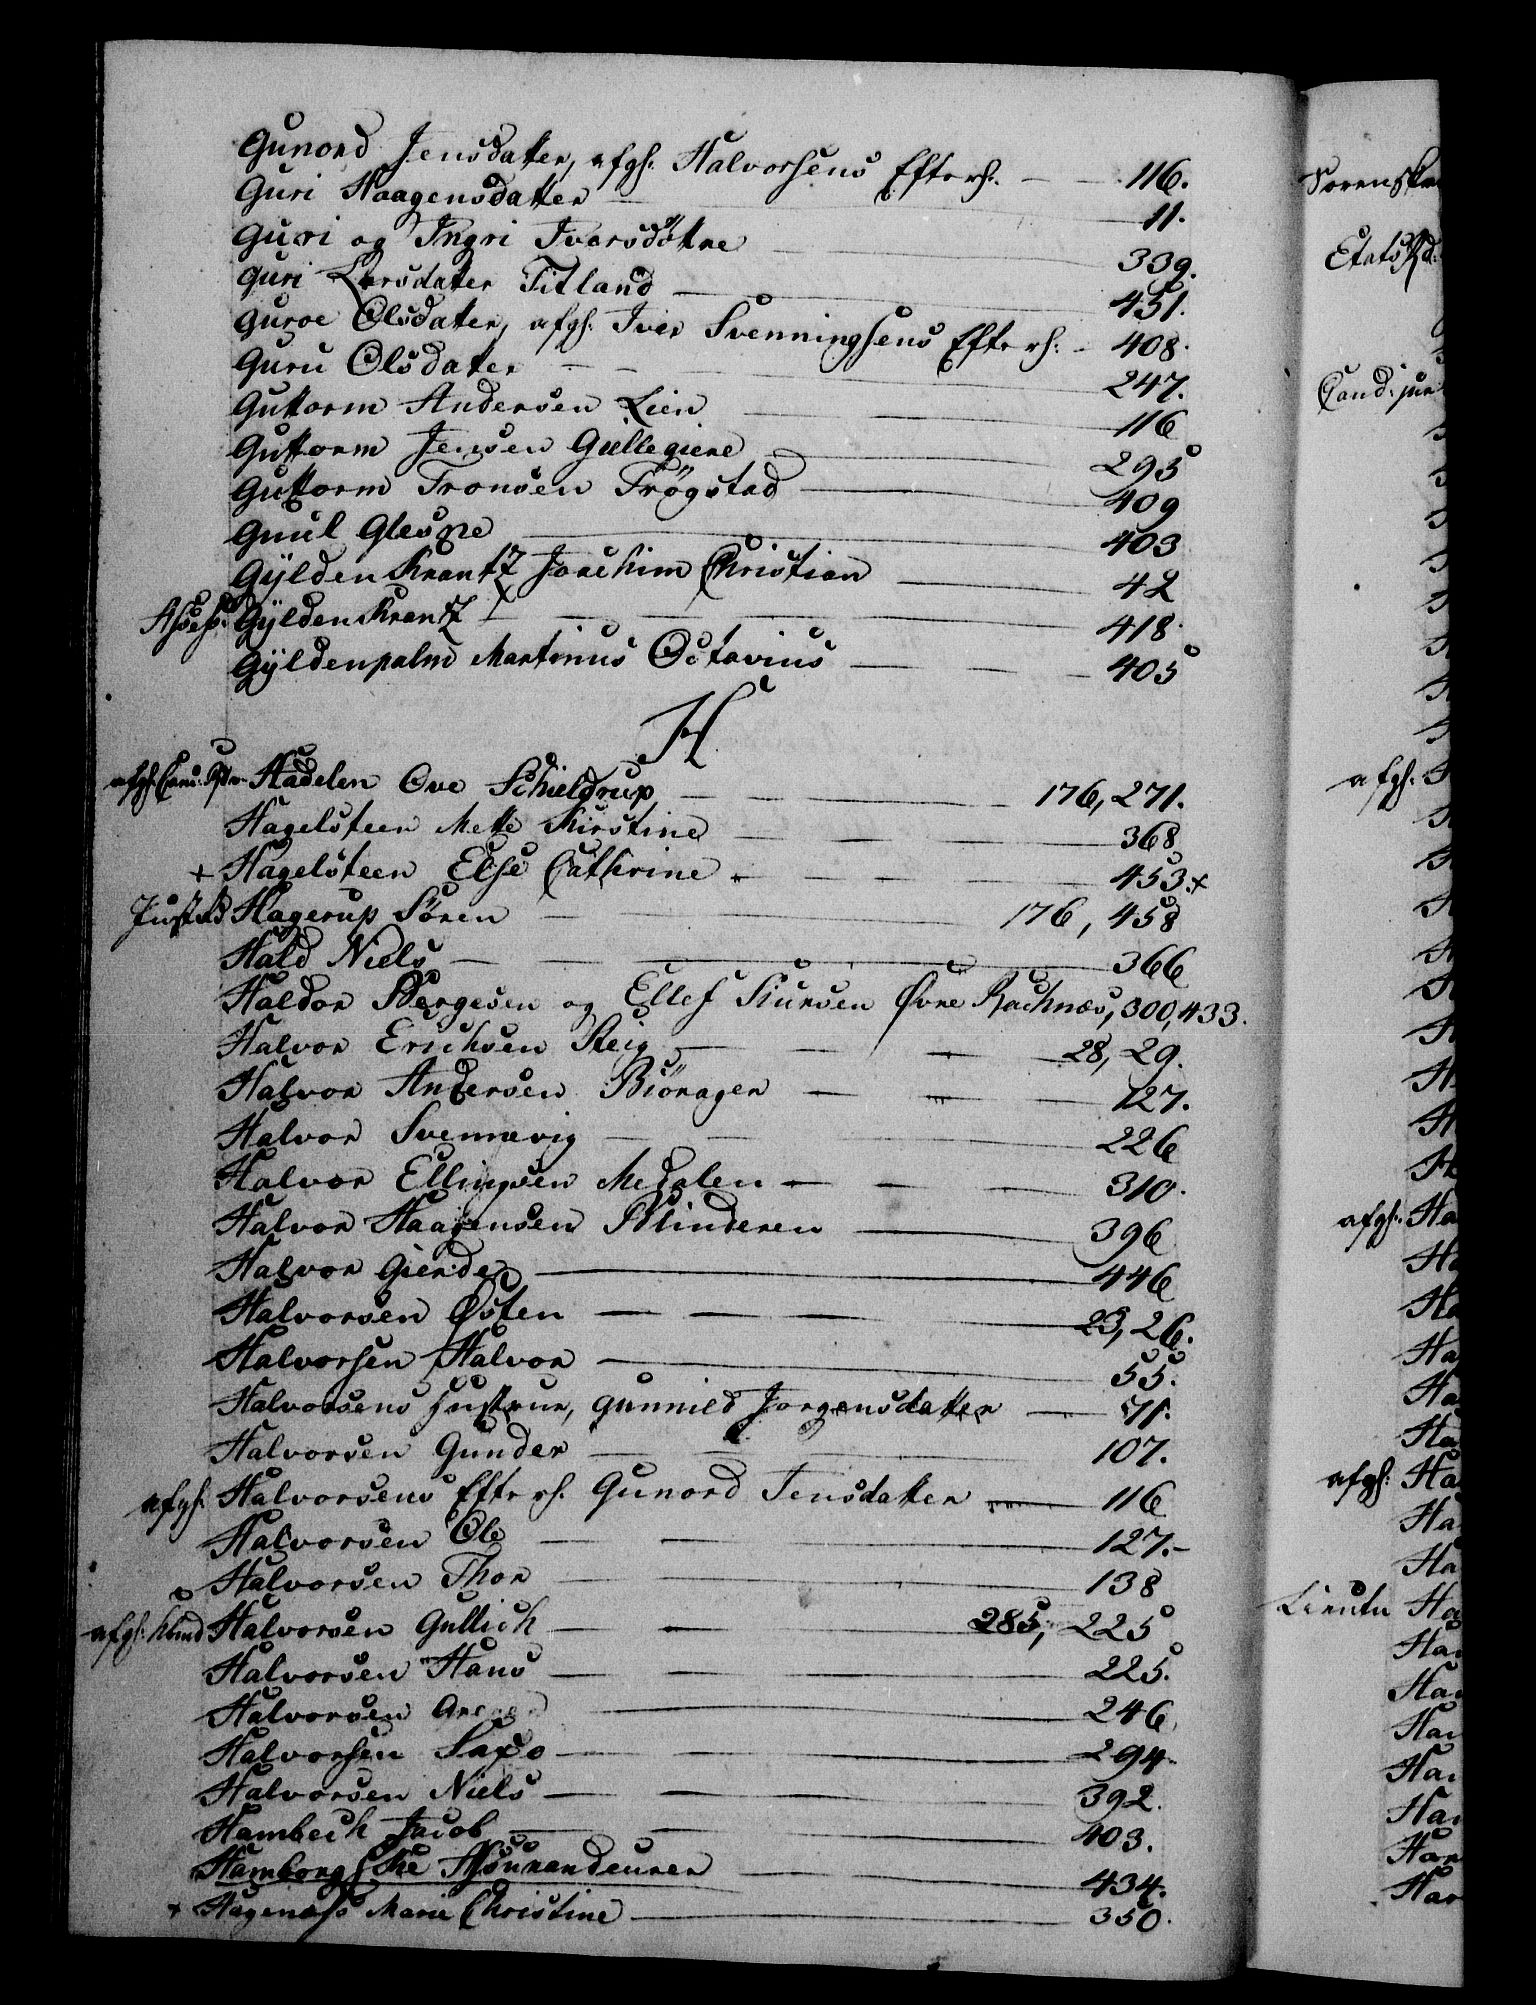 Gunord Jensdatter, afgh. Halvorsens Efterh. — 116.
Guri Haagensdatter — 11.
Guri og Ingri Iversdøttre — 339.
Guri Larsdatter Titland — 451.
Guroe Olsdatter, afgh. Iver Svenningsens Efterh: - 408.
Guru Olsdatter — 247.
Guttorm Andersen Lien — 116
Guttorm Jensen Gullegiere — 295
Guttorm Tronsen Frøgstad — 409
Gunil Glesne — 403
Gyldenkrantz Joachim Christian — 42
Assess: Gyldenkrantz — 418.
Gyldenpalm Martinus Octavius — 405
H.
afgh. Hadelen Ove Schieldrup — 176, 271.
Hagelsteen Mette Kirstine — 368
+ Hagelsteen Else Cathrine — 453. +
Justrd Hagerup Sören — 176, 458
Hald Niels — 366
Haldor Børgesen og Ellef Siursen Øvre Rachnæs, 300, 433.
Halvor Erichsen Steig — 28, 29.
Halvor Andersen Biörager — 127.
Halvor Svennevig — 226
Halvor Ellingsen Medalen — 310.
Halvor Haagensen Blinderen — 396
Halvor Gierde — 446
Halvorsen Østen — 23, 26.
Halvorsen Halvor — 55.
Halvorsens Hustrue, Gunnild Jorgensdatter — 71.
Halvorsen Gunder — 107.
afgh. Halvorsens Efterh. Gunord Jensdatter — 116
Halvorsen Ole — 127.-
Halvorsen Thor — 138
afgh. Halvorsen Gullich — 285, 225
Halvorsen Hans — 225.
Halvorsen — 246
Halvorsen Saxo — 294.
Halvorsen Niels — 392.
Hambech Jacob — 403.
Hamborgske Assurandeurer — 434.
+ Hagenass Marie Christine — 350.
Sorensk
Etatsrd:
Cand: jur
afgh.
afgh. Ha
Ha
Ha
Ha
Ha
Ha
afgh: Ha
Ha
Ha
Lieutn Ha
Han
Han
Han
Han
Han
Har
Har